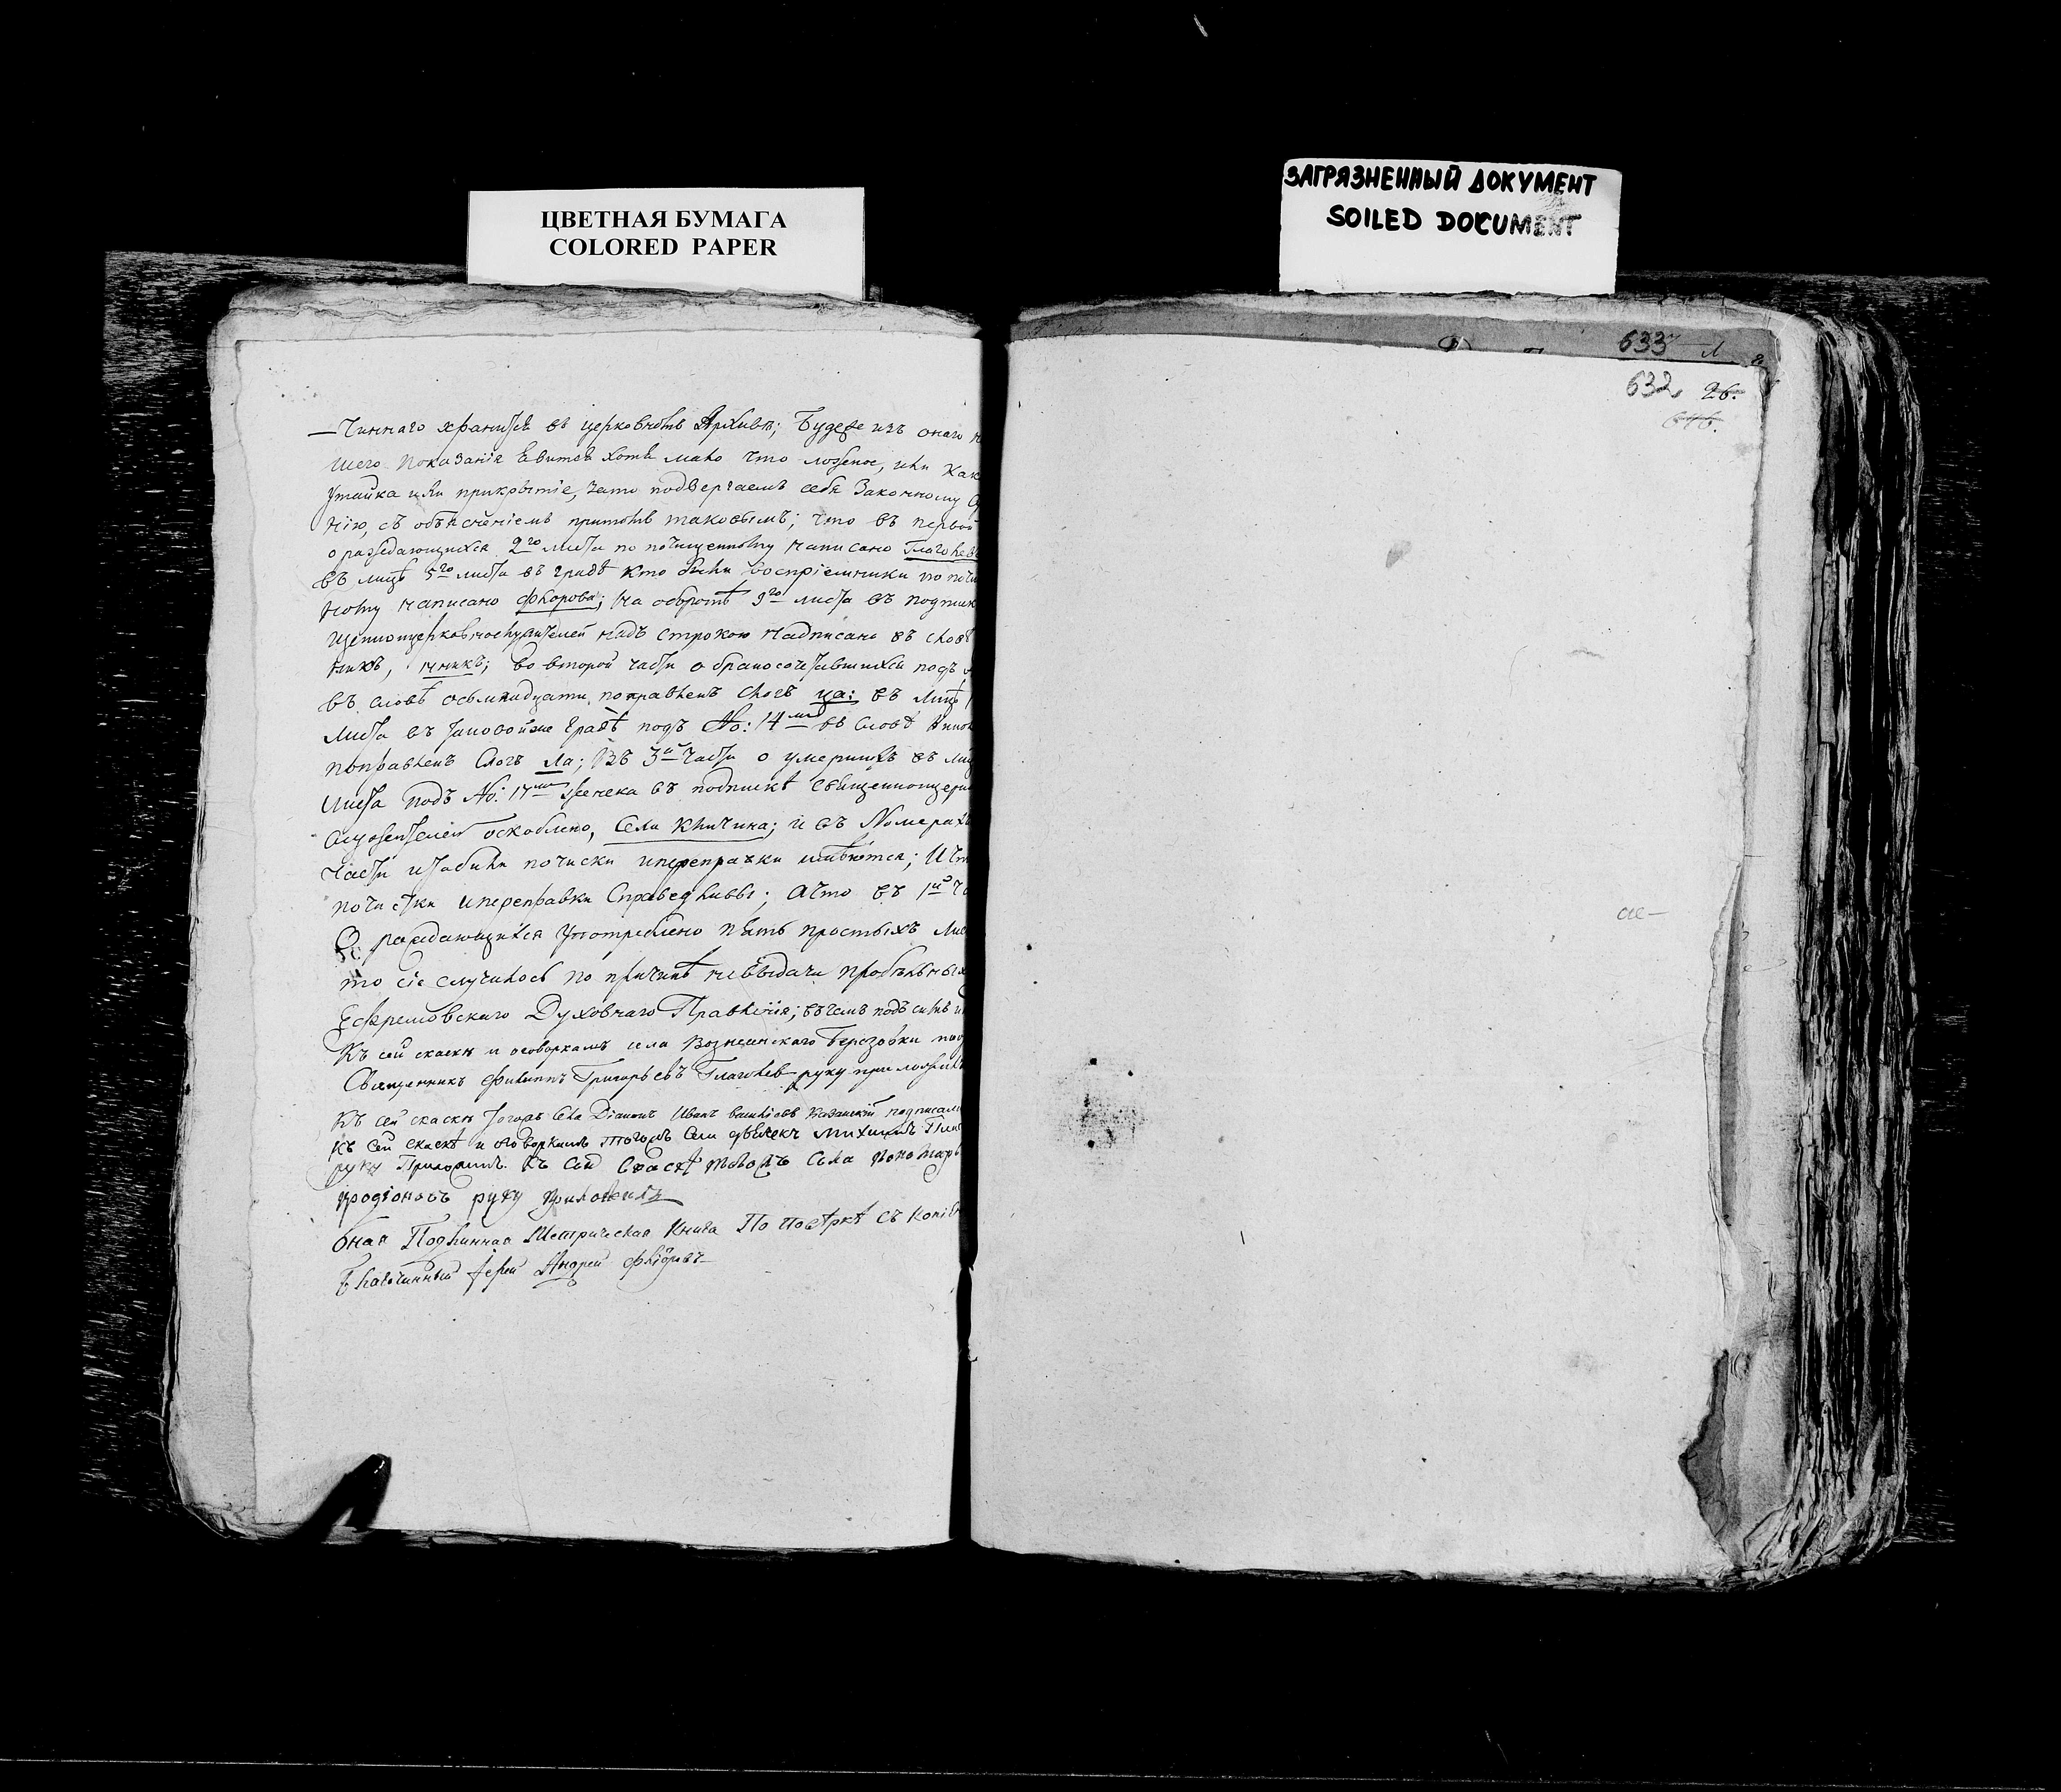 ЦВЕТНАЯ БУМАГА
COLORED PAPER
ЗАГРЯЗНЕННЫЙ ДОКУМЕНТ
SOILED DOCUMENT
633
632 26.
646.
—чиннаго хранится въ церковномъ Архивѣ; Будеже изъ онаго
шего показанія явится хотя мало что ложное, или как
утайка или прикрытіе, зато подвергаемъ себя Законному
нію, съ объясненіемъ притомъ таковымъ; что въ первой
о раждающихся 2го листа по почищенному написано Глаголев
въ лицѣ 5го листа въ графѣ кто были воспріемники по почи
ному написано Флорова; на оборотѣ 9го листа въ подпис
щенноцерковнослужителей надъ строкою надписано въ словѣ
никъ, никъ; во второй части о бракосочетавшихся подъ
въ словѣ осьмнадцати поправленъ слогъ ца: въ лицѣ
листа въ таковойже графѣ подъ No: 14мъ въ словѣ
поправленъ слогъ ла; въ 3й части о умершихъ въ лиц
листа подъ No: 17мъ женска въ подпискѣ священноцерк
служителей оскоблено, села Кличина; и въ Номерахъ
части и табели почистки и переправки имѣются; И
почистки и переправки Справедливы; Ачто въ 1й ча
О раждающихся употреблено пять простыхъ лис
то сіе случилось по причинѣ невыдачи пробѣльныхъ
Ефремовскаго Духовнаго Правленія; въ чемъ подъ симъ и
Къ сей скаскѣ и оговоркамъ села Вознесенскаго Березовки
Священникъ Филиппъ Григорьевъ Глаголев руку приложилъ
Къ сей скаскѣ тогожъ села Діаконъ Иванъ Васильевъ Казанскій подписал
Къ сей скаскѣ и оговоркамъ тогожъ села дьячекъ Михаилъ
руку Приложилъ. Къ сей скаскѣ тогожъ села пономарь
родіоновъ руку приложилъ
бная Подлинная Метрическая Книга По повѣркѣ съ копіе
Благочинный іерей Андрей Флоровъ
ае—